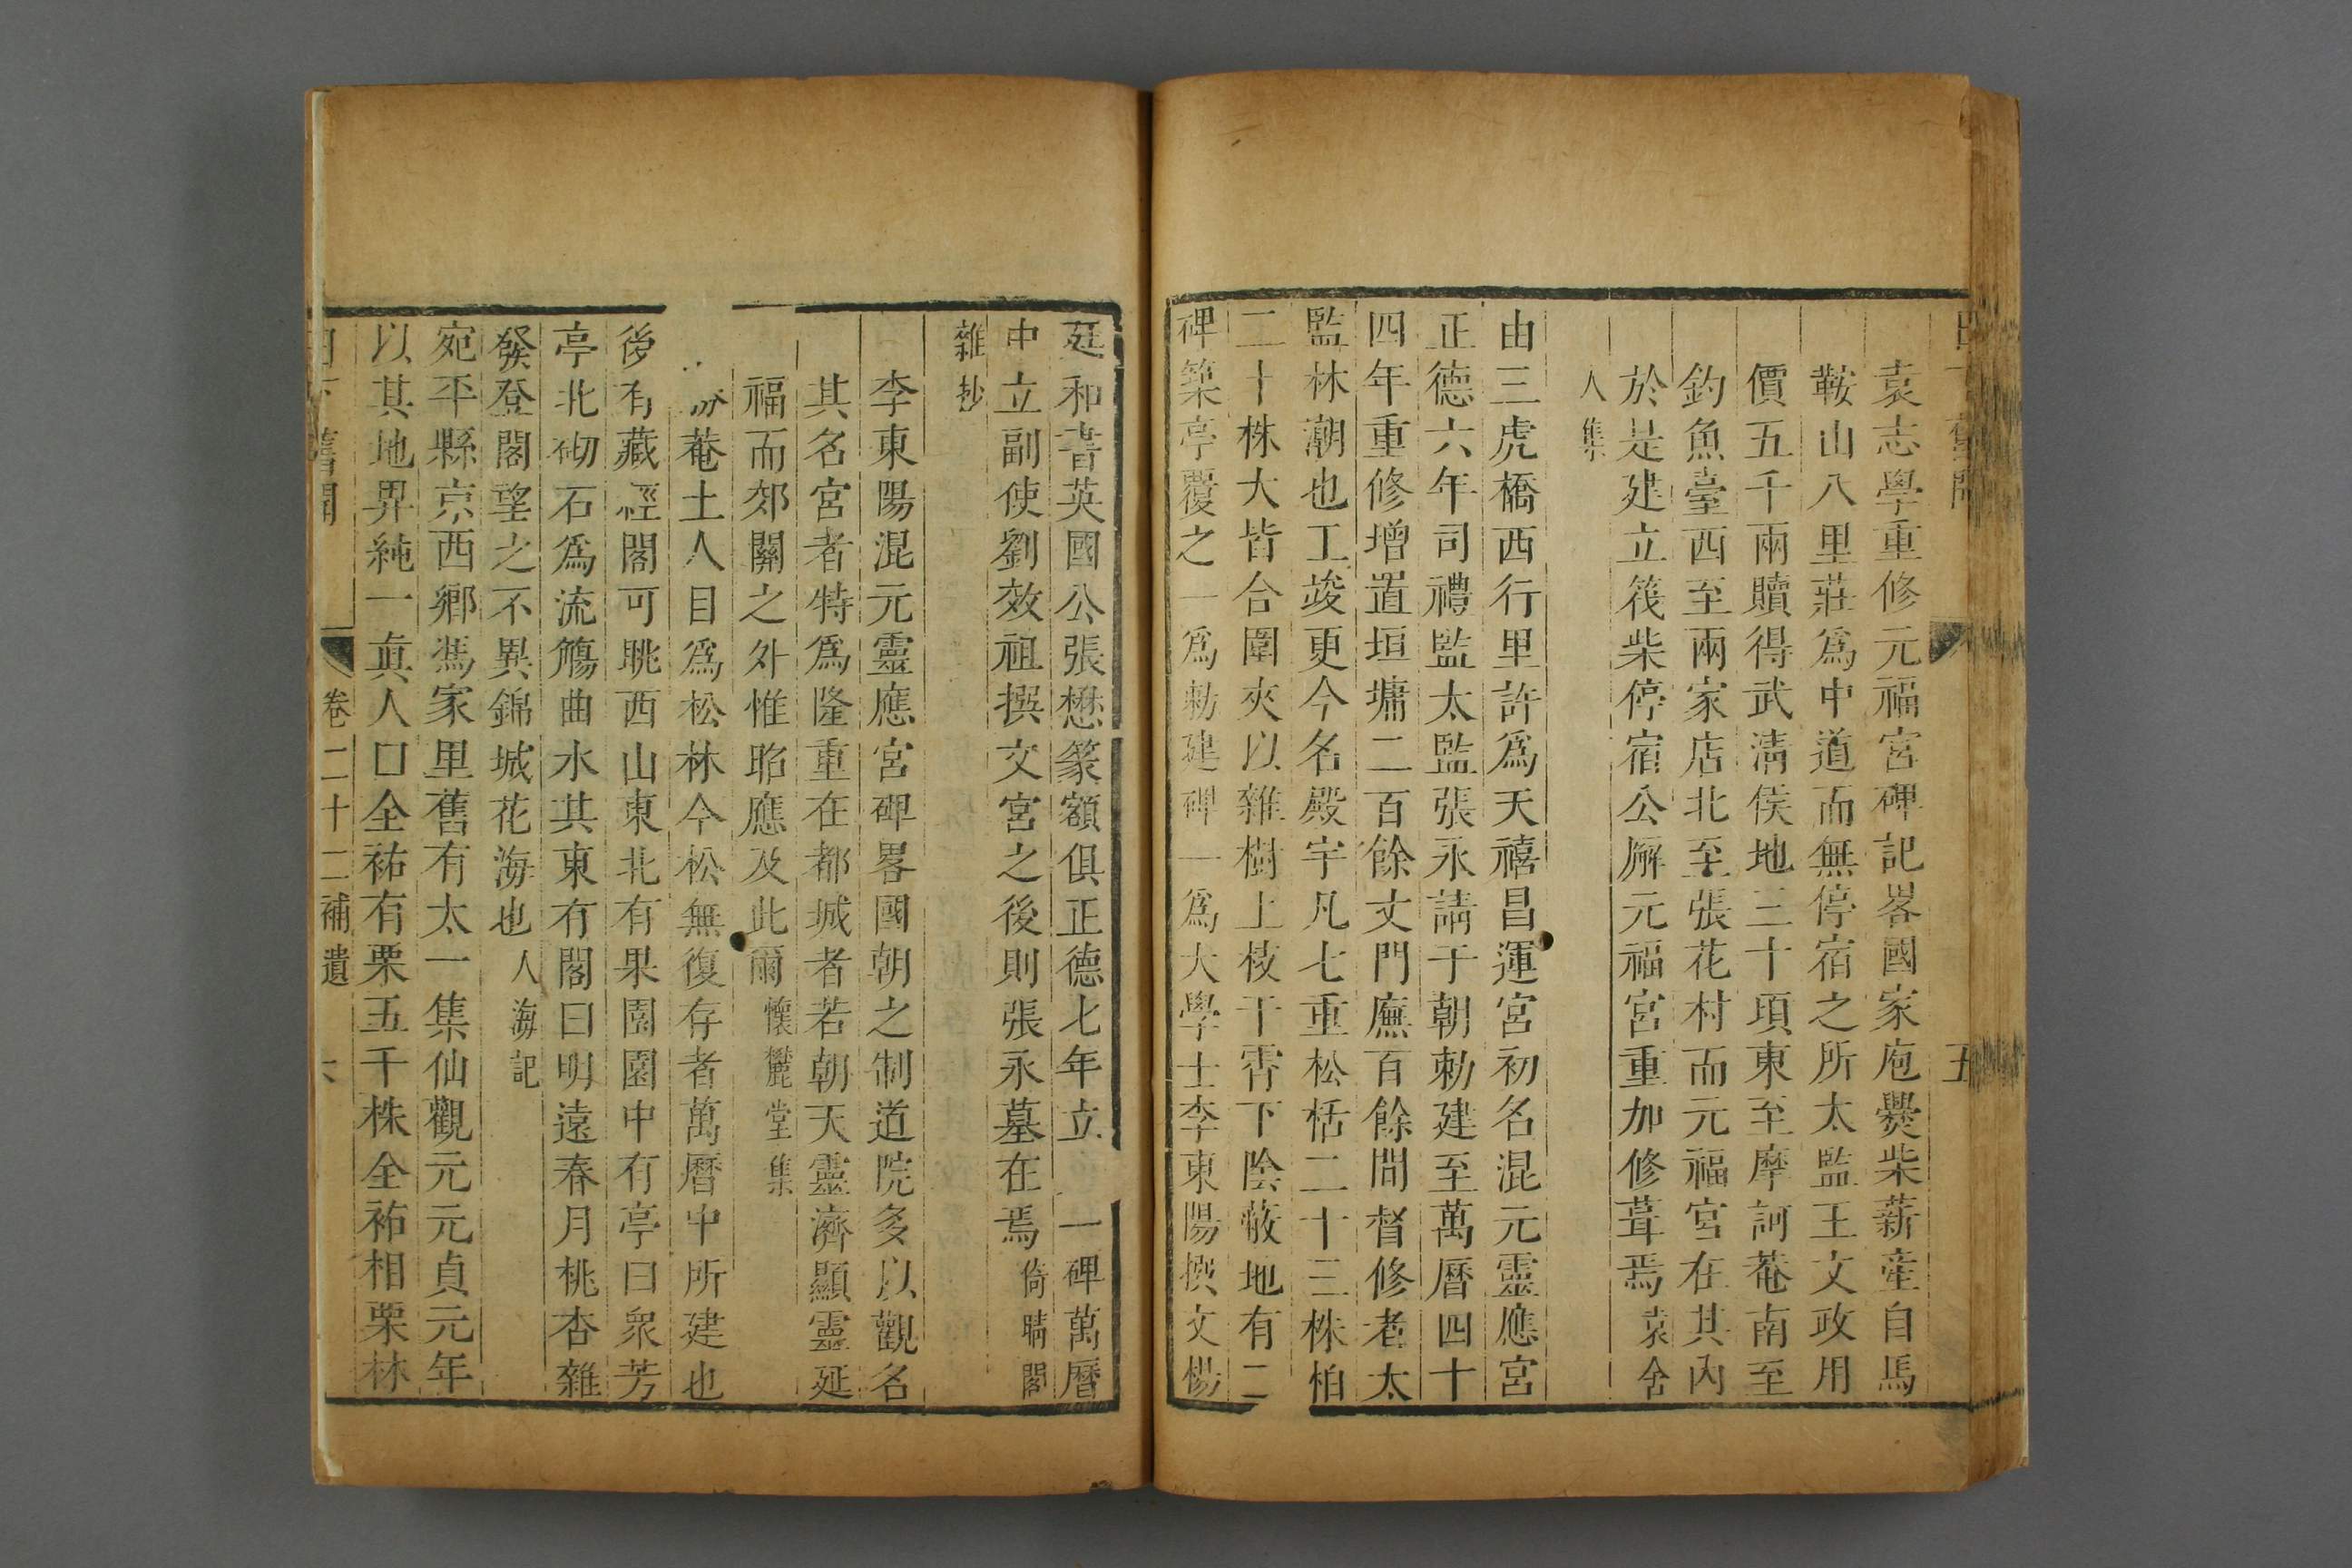 袁志學重修元福宮碑記畧國家庖爨柴薪產自馬
鞍山八里莊爲中道而無停宿之所太監王文政用
價五千兩贖得武淸侯地三十頃東至摩訶菴南至
釣魚臺西至兩家店北至張花村而元福宮在其內
於是建立筏柴停宿公廨元福宮重加修葺焉袁舍
人集
由三虎橋西行里許爲天禧昌運宮初名混元靈應宮
正德六年司禮監太監張永請于朝勅建至萬曆四十
四年重修增置垣墉二百餘丈門廡百餘間督修者太
監林潮也工竣更今名殿宇凡七重松栝二十三株柏
二十株大皆合圍夾以雜樹上枝干霄下陰蔽地有二
碑築亭覆之一爲勅建碑一爲大學士李東陽撰文楊
廷和書英國公張懋篆額俱正德七年立 一碑萬曆
中立副使劉效祖撰文宮之後則張永墓在焉倚晴閣
雜抄
李東陽混元靈應宮碑畧國朝之制道院多以觀名
其名宮者特爲隆重在都城者若朝天靈濟顯靈延
福而郊關之外惟昭應及此爾懷麓堂集
菴土人目爲松林今松無復存者萬曆中所建也
後有藏經閣可眺西山東北有果園園中有亭曰衆芳
亭北砌石爲流觴曲水其東有閣曰明遠春月桃杏雜
發登閣望之不異錦城花海也人海記
宛平縣京西鄉馮家里舊有太一集仙觀元元貞元年
以其地畀純一眞人口全祐有栗五千株全祐相栗林
日下舊聞 卷二十二補遺 六